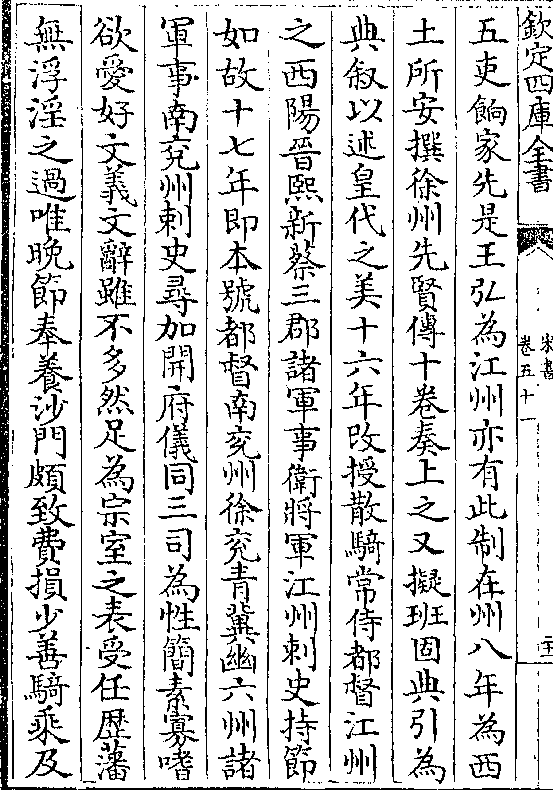 欽定四庫全書
宋書
卷五十一
五吏餉家先是王弘為江州亦有此制在州八年為西
土所安撰徐州先賢傳十卷奏上之又擬班固典引為
典敘以述皇代之美十六年改授散騎常侍都督江州
之西陽晉熙新蔡三郡諸軍事衛將軍江州刺史持節
如故十七年即本號都督南兖州徐兖青冀幽六州諸
軍事南兖州刺史尋加開府儀同三司為性簡素寡嗜
欲愛好文義文辭雖不多然足為宗室之表受任歴藩
無浮淫之過唯晚節奉養沙門頗致費損少善騎乘及